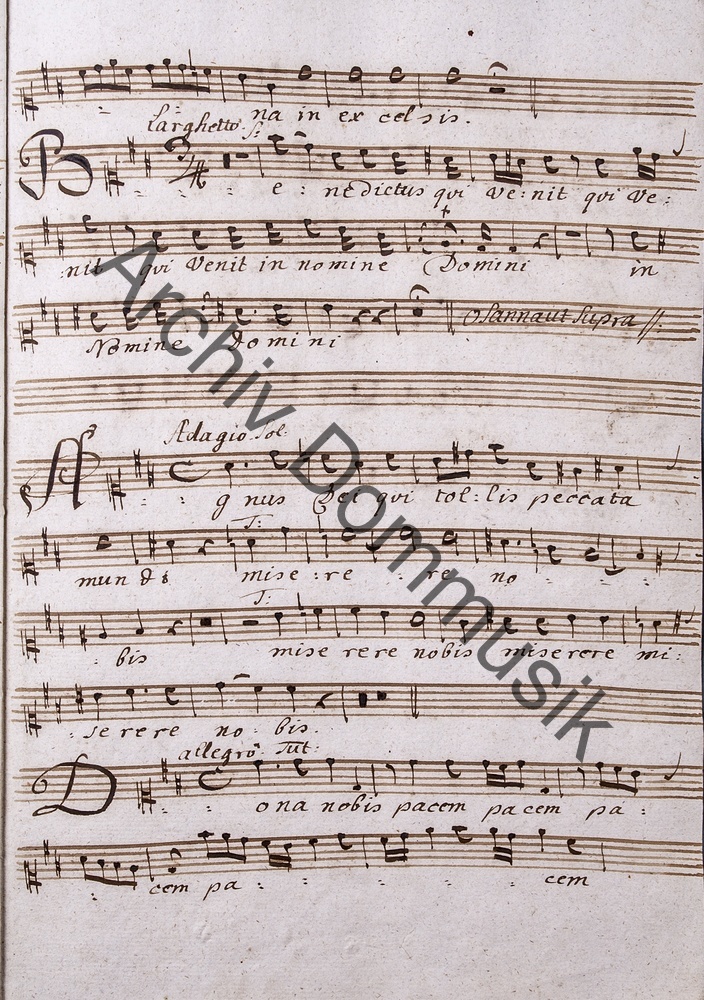 na in ex celsis.
Larghetto. S:
Be: nedictus qui Ve:nit qui Ve:
nit qui Venit in nomine Domini in
Nomine Domini Osanna ut Supra //:
Adagio. Sol:
Agnus Dei qui tol:lis peccata
T:
mundi mise:re re no
T:
bis mise rere nobis miserere mi:
serere no: bis.
allegro Tut:
Dona nobis pacem pacem pa:
cem pa: cem
Archiv Dommusik